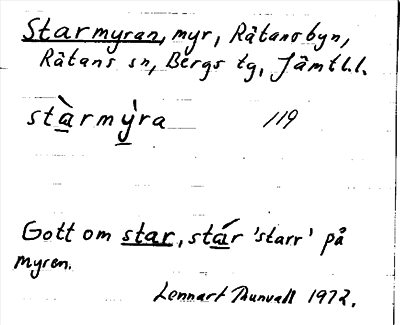 Starmyran, myr, Råtansbyn,
Råtans sn, Bergs tg, Jämtl.l.
stàrmỳra 119
Gott om star, stár 'starr' på
myren.
Lennart Thunvall 1972.